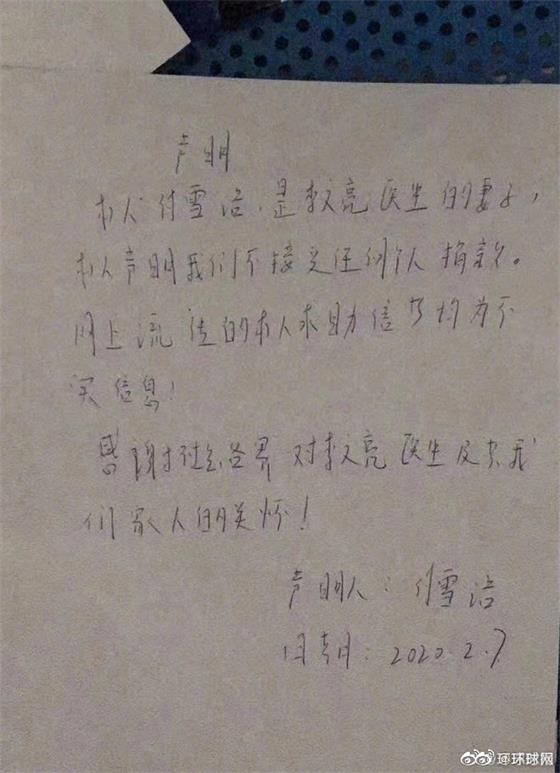 声明
本人付雪洁,是李文亮医生的妻子,
本人声明我们不接受任何个人捐款。
网上流传的本人求助信息均为不
实信息!
感谢社会各界对李文亮医生及我
们家人的关怀!
声明人:付雪洁
日期:2020.2.7
@环球网